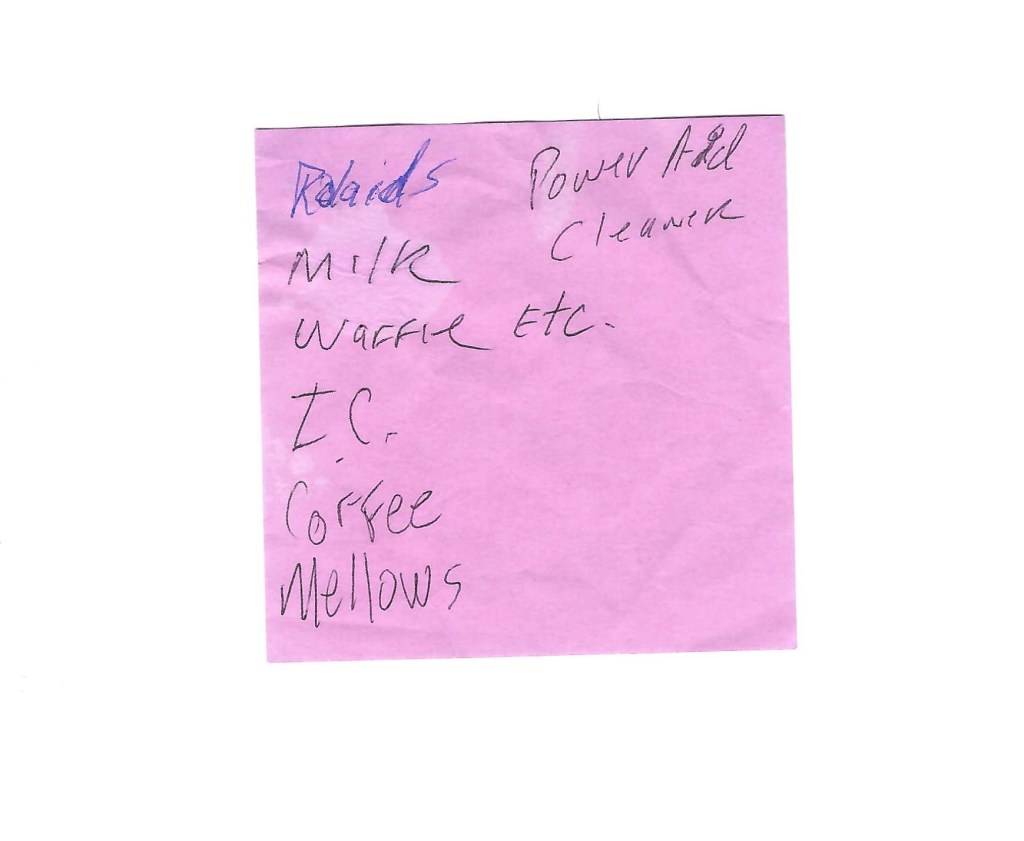 Rolaids
Milk
Waffle Etc.
I.C.
Coffee
Mellows
Power Add
Cleaner